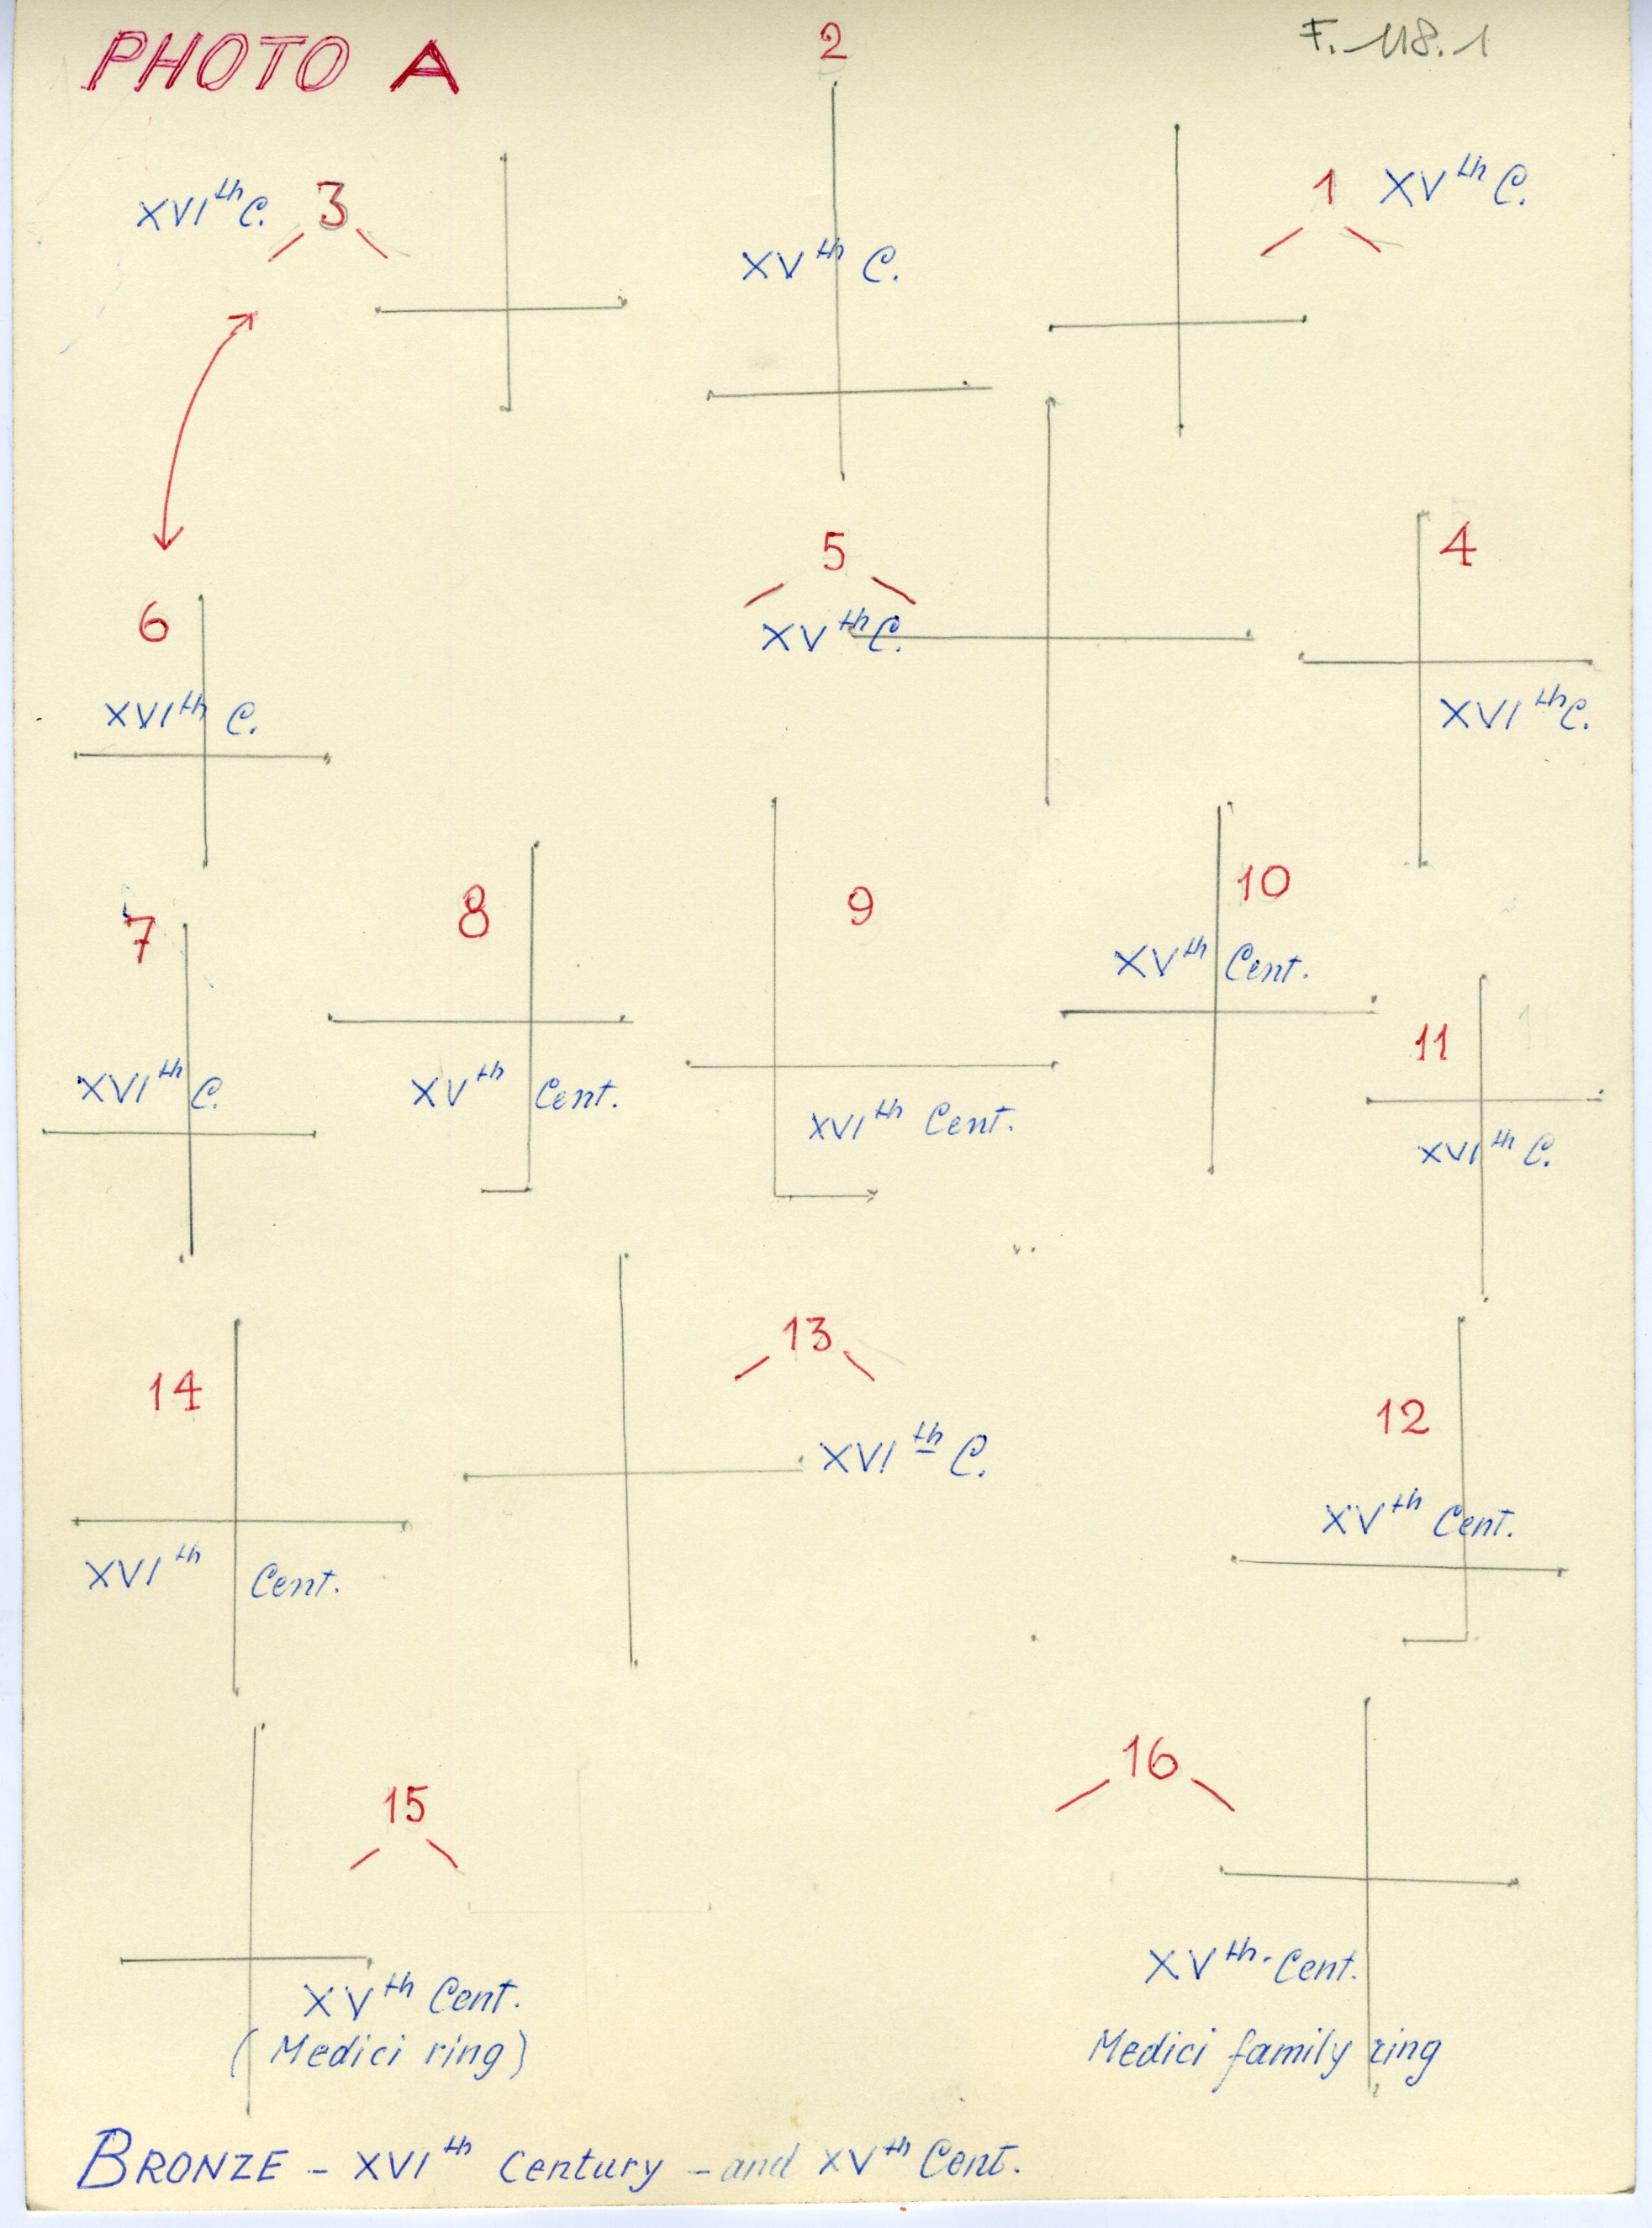 PHOTO A
2
F. 118.1
XVIth C. 3
XVth C.
1 XVth C.
5
XVth C.
4
XVIth C.
6
XVIth C.
7
XVIth C.
8
XVth Cent.
9
XVIth Cent.
10
XVth Cent.
11
XVIth C.
14
XVIth Cent.
13
XVIth C.
12
XVth Cent.
15
XVth Cent.
(Medici ring)
16
XVth. Cent.
Medici family ring
BRONZE - XVIth Century - and XVth Cent.